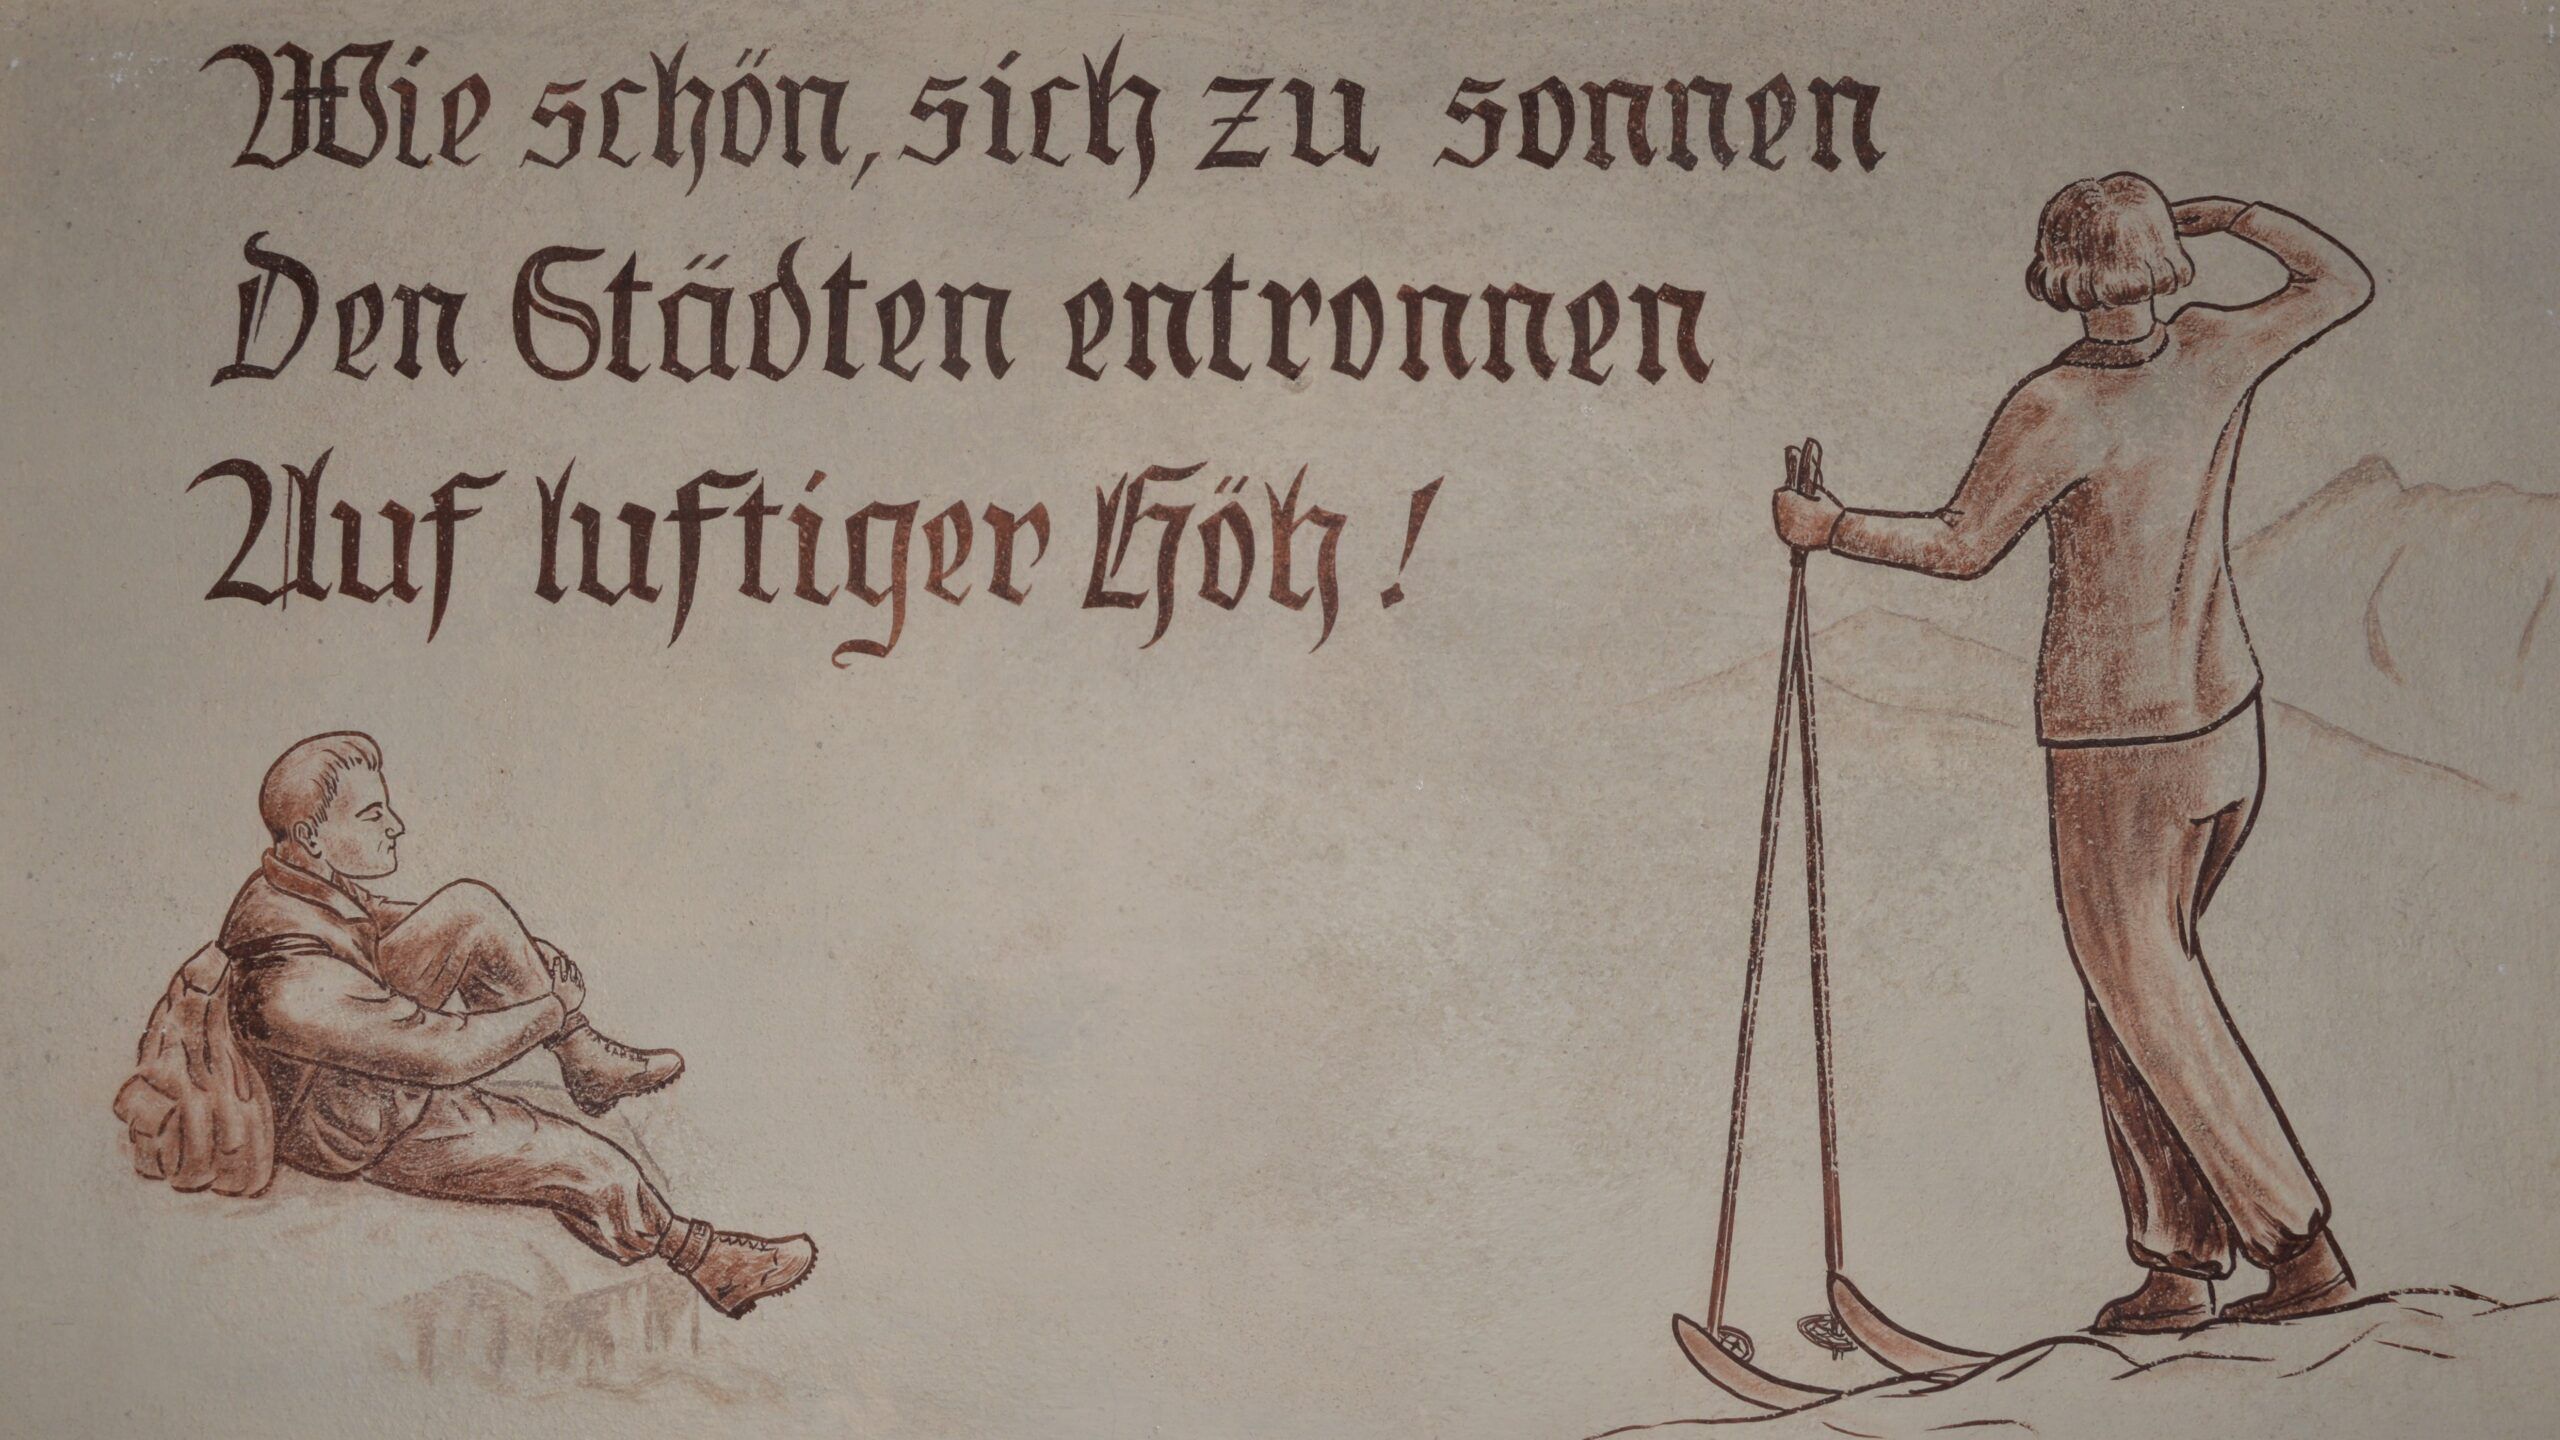 Wie schön, sich zu sonnen
Den Städten entronnen
Auf luftiger Höh!